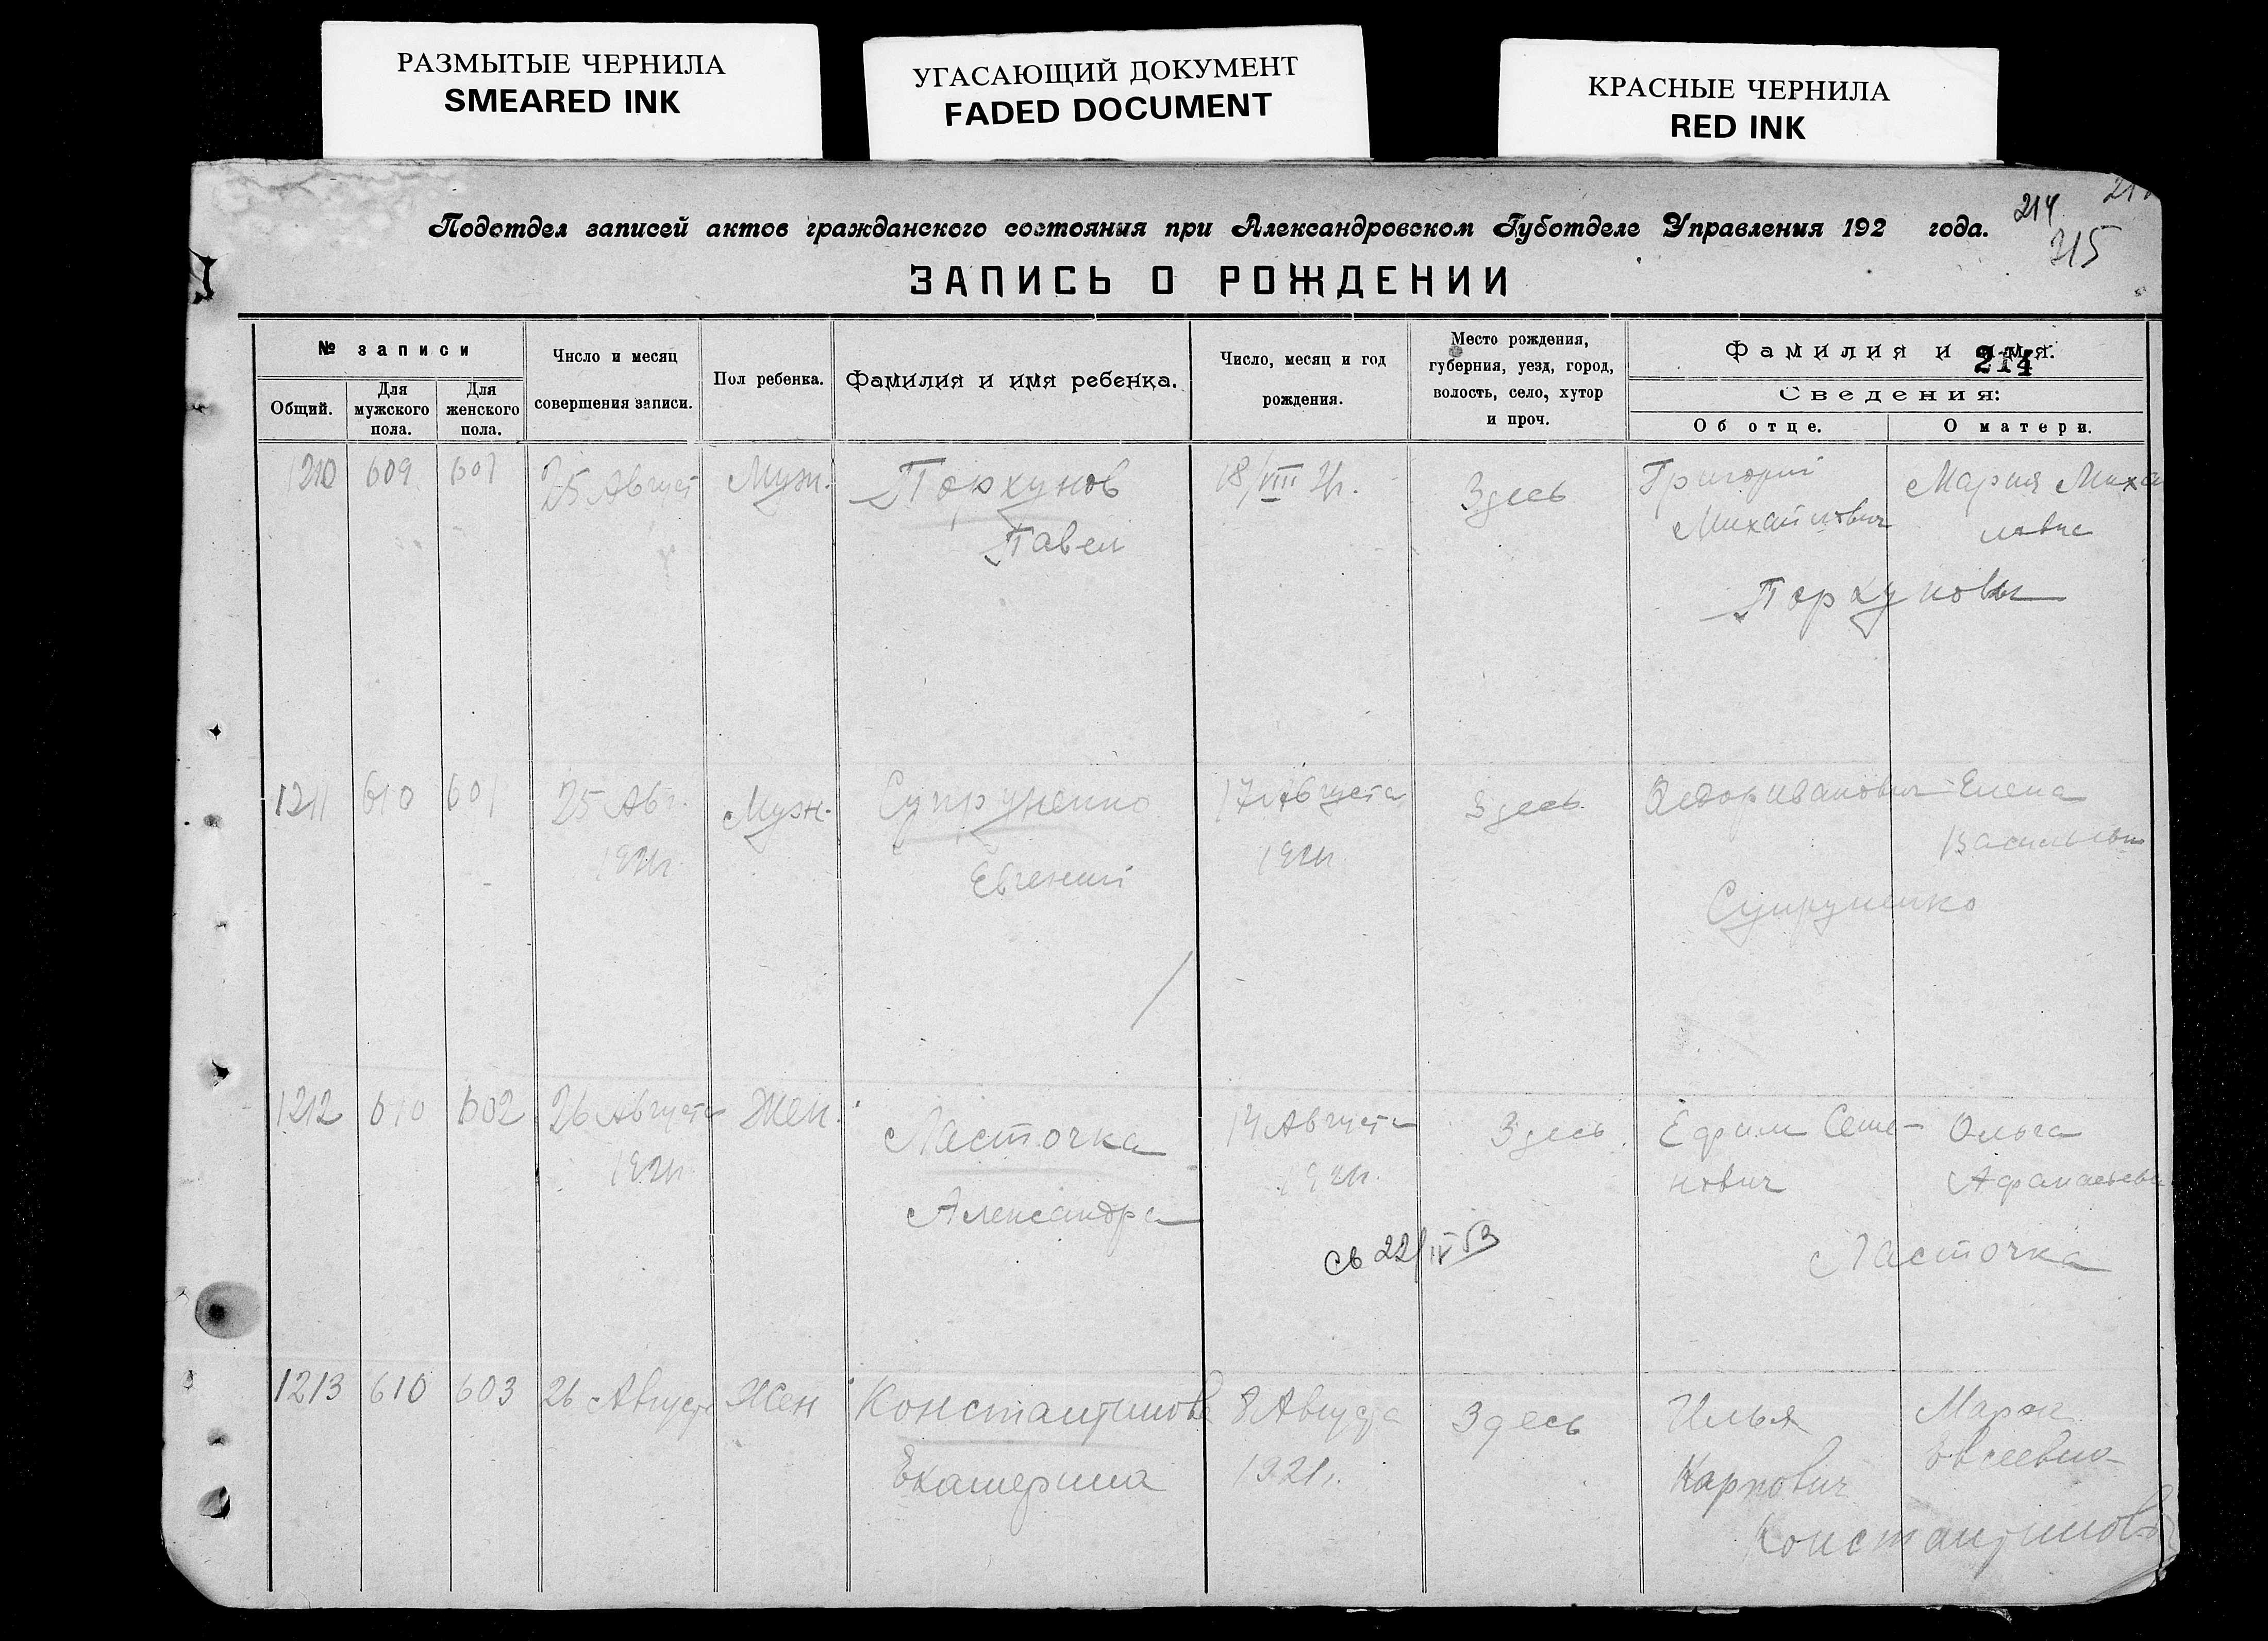 РАЗМЫТЫЕ ЧЕРНИЛА
SMEARED INK
УГАСАЮЩИЙ ДОКУМЕНТ
FADED DOCUMENT
КРАСНЫЕ ЧЕРНИЛА
RED INK
214
315
Подотдел записей актов гражданского состояния при Александровском Губотделе Управления 192 года.
ЗАПИСЬ О РОЖДЕНИИ
№ записи
Общий.
Для мужского пола.
Для женского пола.
Число и месяц
совершения записи.
Пол ребенка.
Фамилия и имя ребенка.
Число, месяц и год
рождения.
Место рождения,
губерния, уезд, город,
волость, село, хутор
и проч.
Фамилия и имя.
214
Сведения:
Об отце.
О матери.
1210 609 601 25 Август Муж. Порхунов 18/VIII 21г. Здесь Григорий Мария Миха
Павел Михайлович
Порхуновы
1211 610 601 25 Авг. Муж. Супруненко 17 Августа Здесь Федор Иванович Елена
1921г. Евгений 1921г.
Супруненко
1212 610 602 26 Августа Жен. Ласточка 14 Августа Здесь. Ефим Семе- Ольга
1921г. Александра 1921г. нович
св 22/IV 53
Ласточка
1213 610 603 26 Августа Жен Константинова 8 Августа Здесь Илья Мария
Екатерина 1921г. Карпович Евсеевна
Константинов